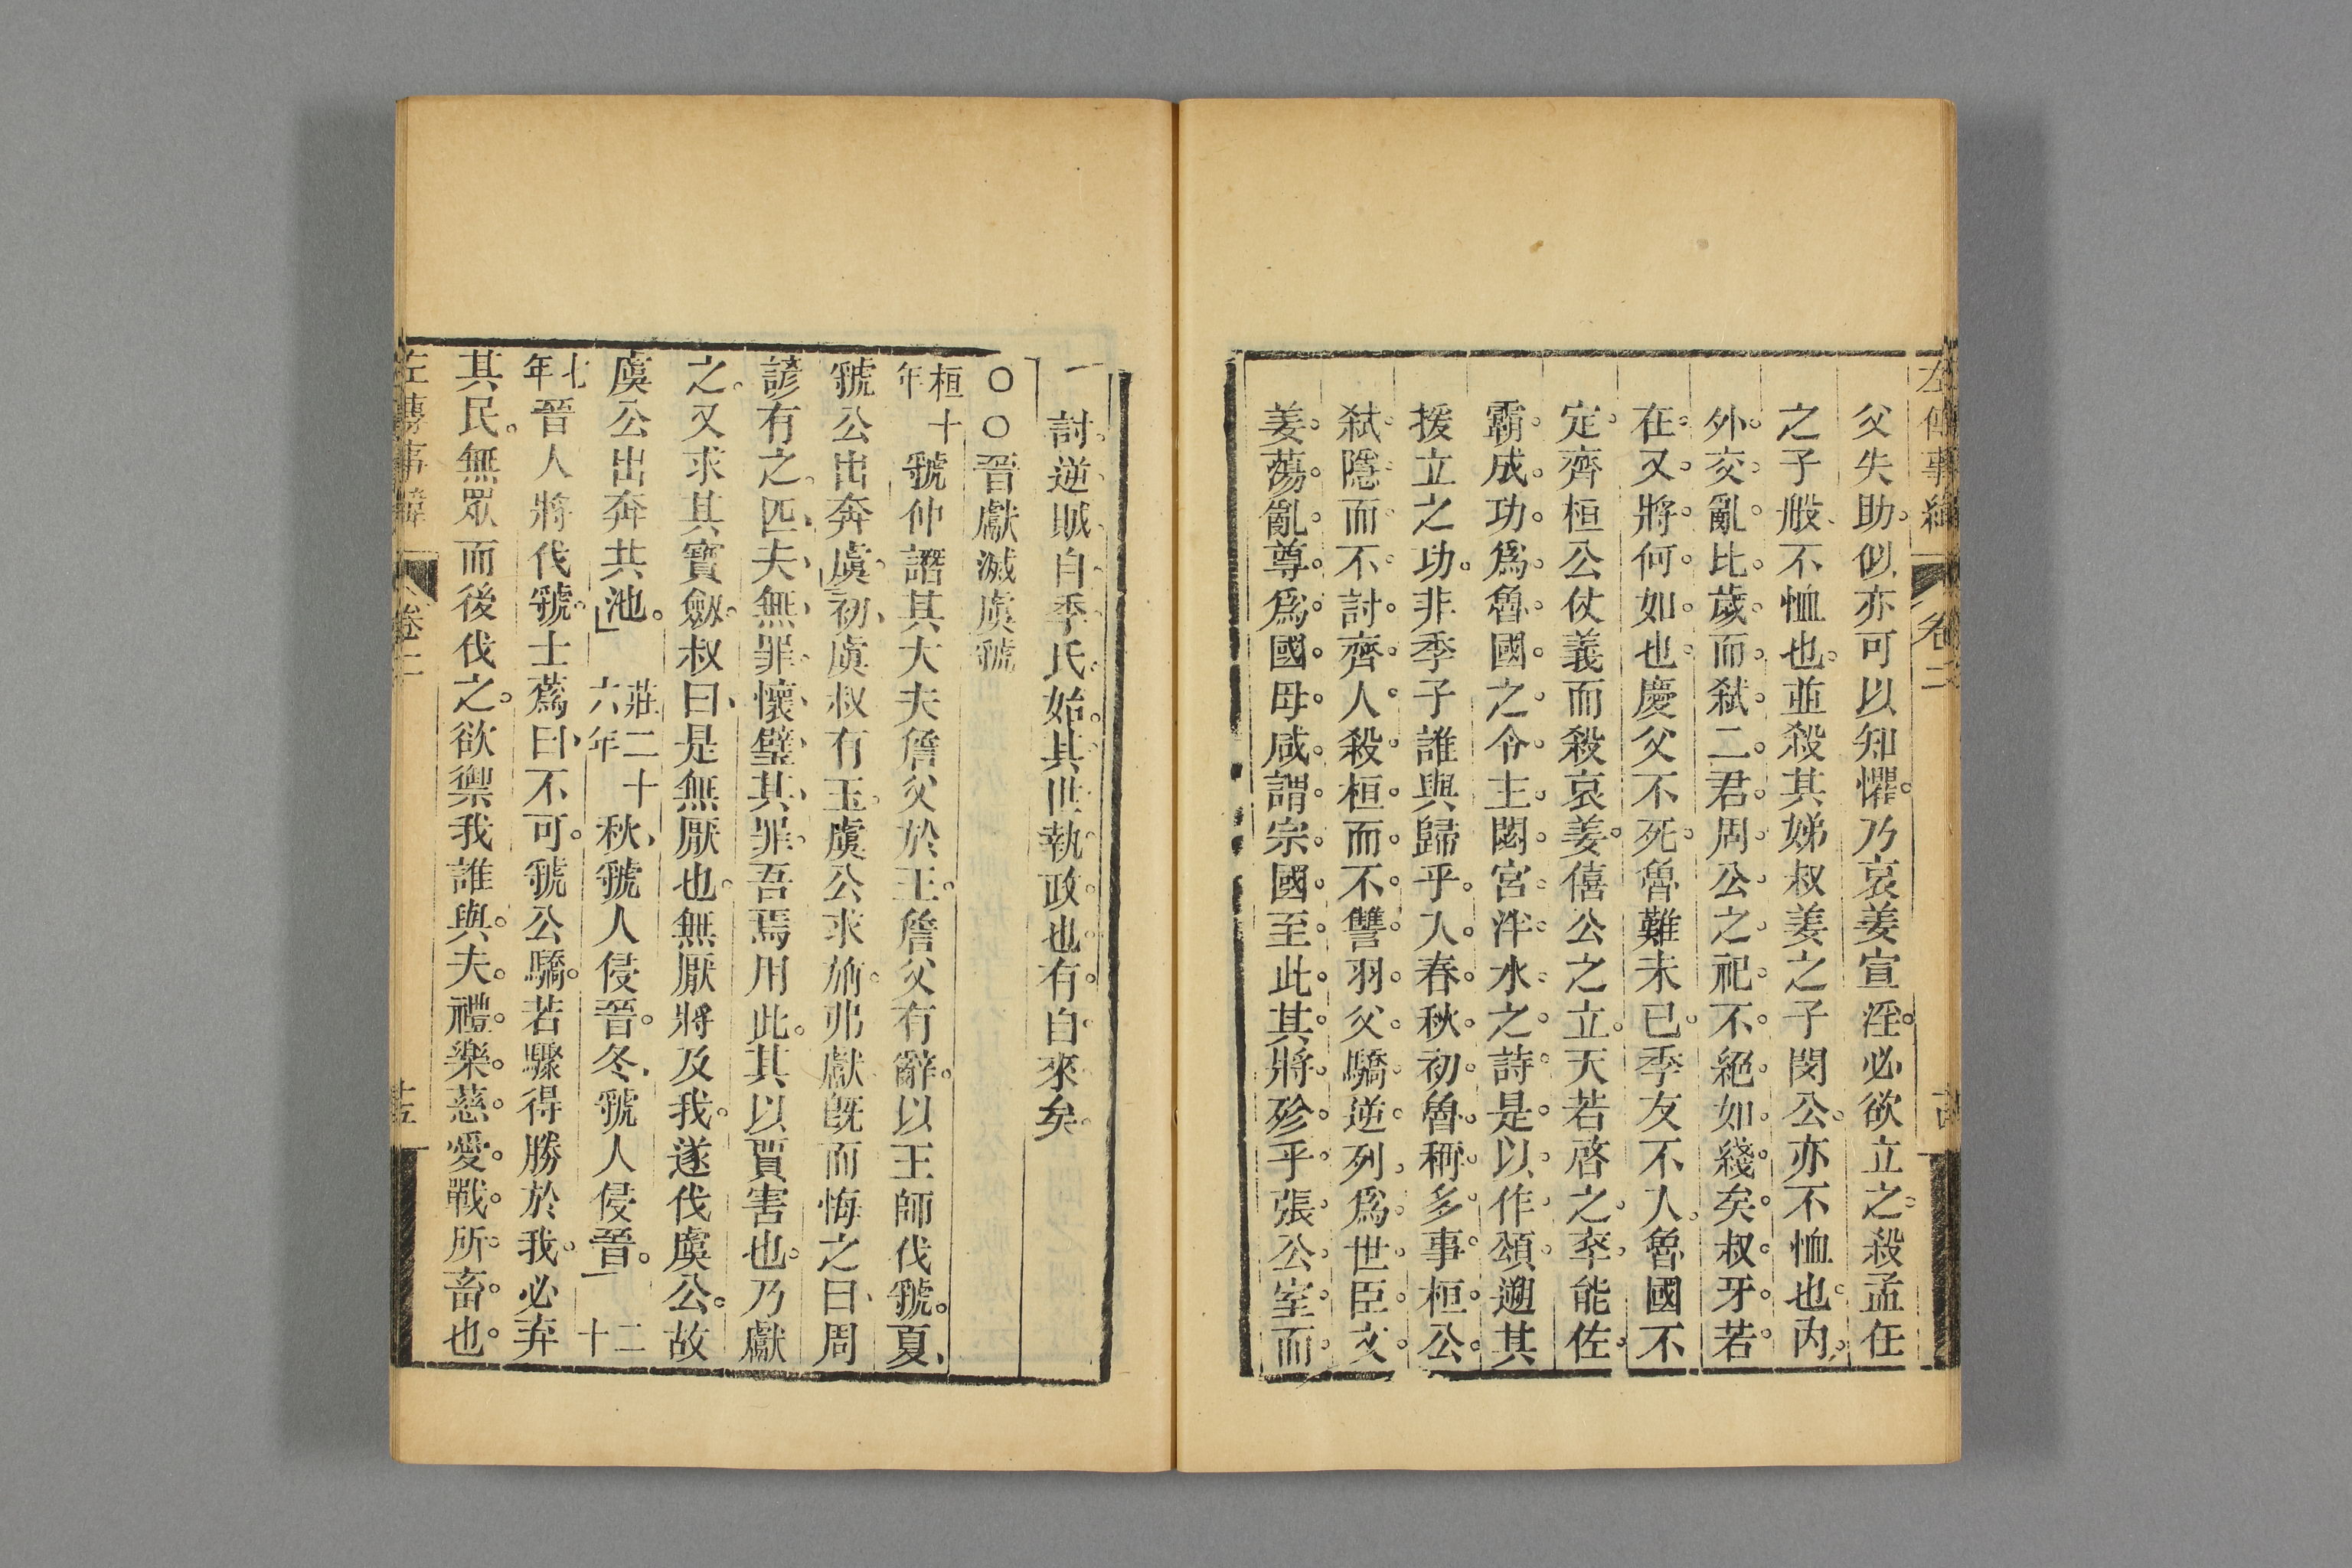 左傳事緯 卷二
父失助似亦可以知懼乃哀姜宣淫必欲立之殺孟任
之子般不恤也並殺其娣叔姜之子閔公亦不恤也內
外交亂比歲而弒二君周公之祀不絕如綫矣叔牙若
在又將何如也慶父不死魯難未已季友不入魯國不
定齊桓公仗義而殺哀姜僖公之立天若啓之卒能佐
霸成功爲魯國之令主閟宮泮水之詩是以作頌遡其
援立之功非季子誰與歸乎入春秋初魯稱多事桓公
弒隱而不討齊人殺桓而不讐羽父驕逆列爲世臣文
姜蕩亂尊爲國母咸謂宗國至此其將殄乎張公室而
討逆賊自季氏始其世執政也有自來矣
〇〇晉獻滅虞虢
桓十年虢仲譖其大夫詹父於王詹父有辭以王師伐虢夏
虢公出奔虞初虞叔有玉虞公求旃弗獻旣而悔之曰周
諺有之匹夫無罪懷璧其罪吾焉用此其以賈害也乃獻
之又求其寶劔叔曰是無厭也無厭將及我遂伐虞公故
虞公出奔共池莊二十六年秋虢人侵晉冬虢人侵晉二十
七年晉人將伐虢士蔿曰不可虢公驕若驟得勝於我必弃
其民無眾而後伐之欲禦我誰與夫禮樂慈愛戰所畜也
左傳事緯 卷二